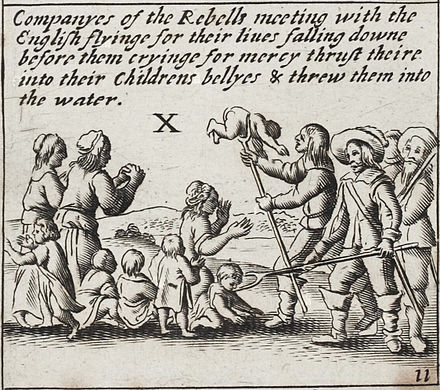 Companyes of the Rebells meeting with the
Engliſh flyinge for their liues falling downe
before them cryinge for mercy thruſt theire
into their Childrens bellyes & threw them into
the water.
X
11